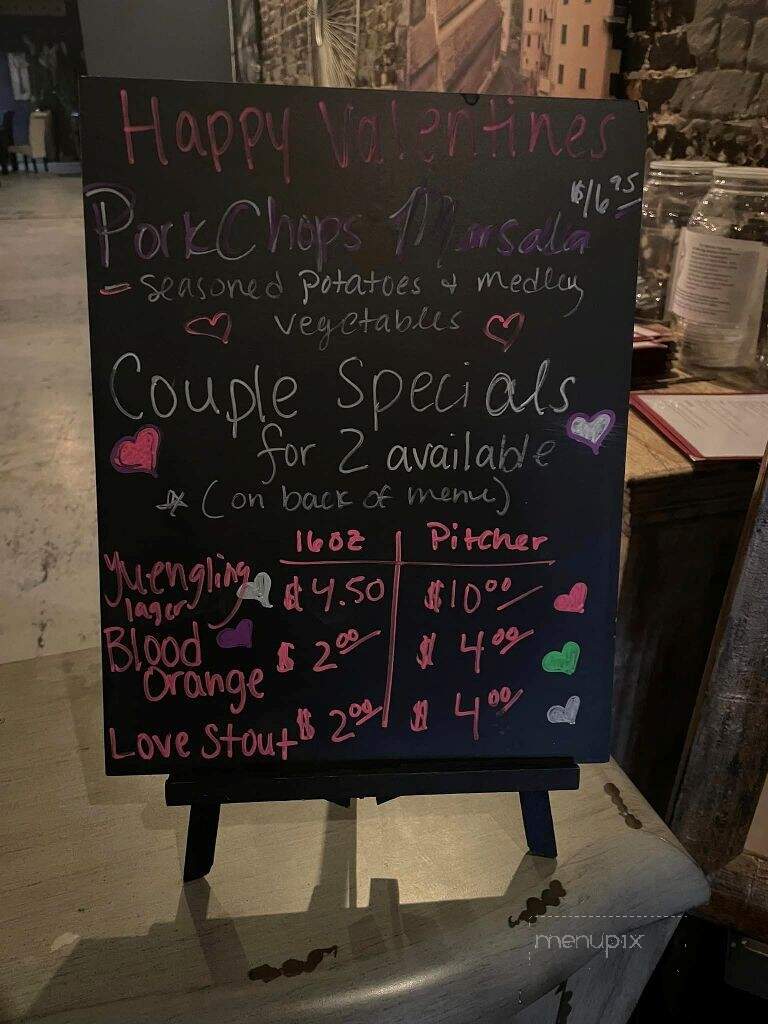 Happy Valentines
$16.95
Pork Chops Marsala
- Seasoned Potatoes & medley
vegetables
Couple Specials
for 2 available
* (on back of menu)
16oz | Pitcher
Yuengling lager $4.50 $10.00
Blood Orange $2.00 $4.00
Love Stout $2.00 $4.00
menupix